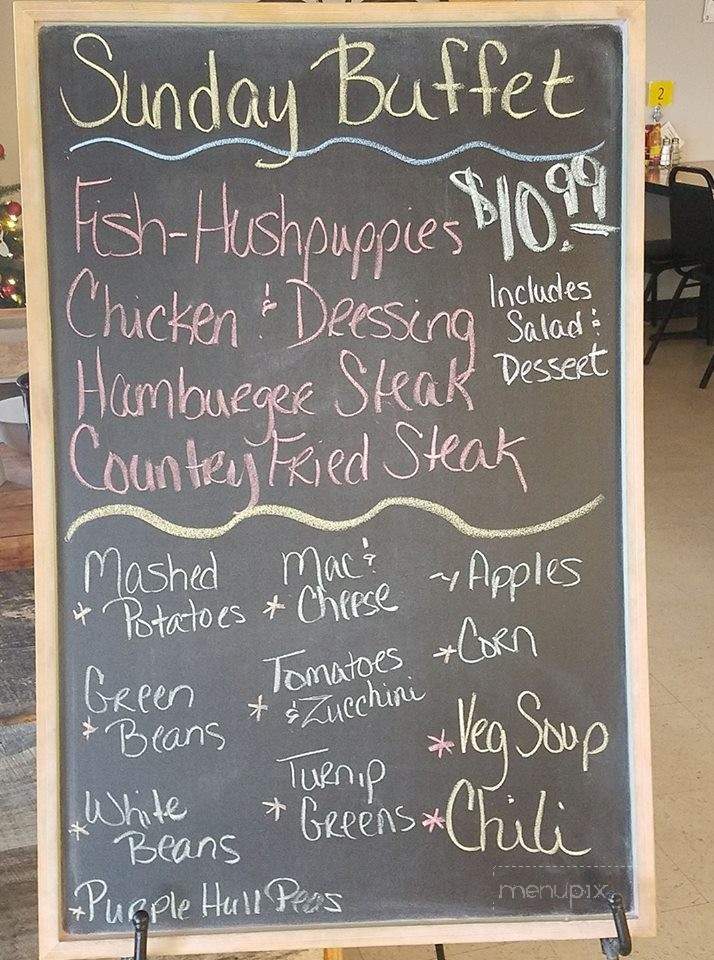 Sunday Buffet
$10.99
Fish-Hushpuppies
Chicken & Dressing
Hamburger Steak
Country Fried Steak
Includes
Salad &
Dessert
Mashed
* Potatoes
Green
* Beans
* White
Beans
* Purple Hull Peas
Mac &
* Cheese
Tomatoes
* & Zucchini
Turnip
* Greens
* Apples
* Corn
* Veg Soup
* Chili
menupix
2